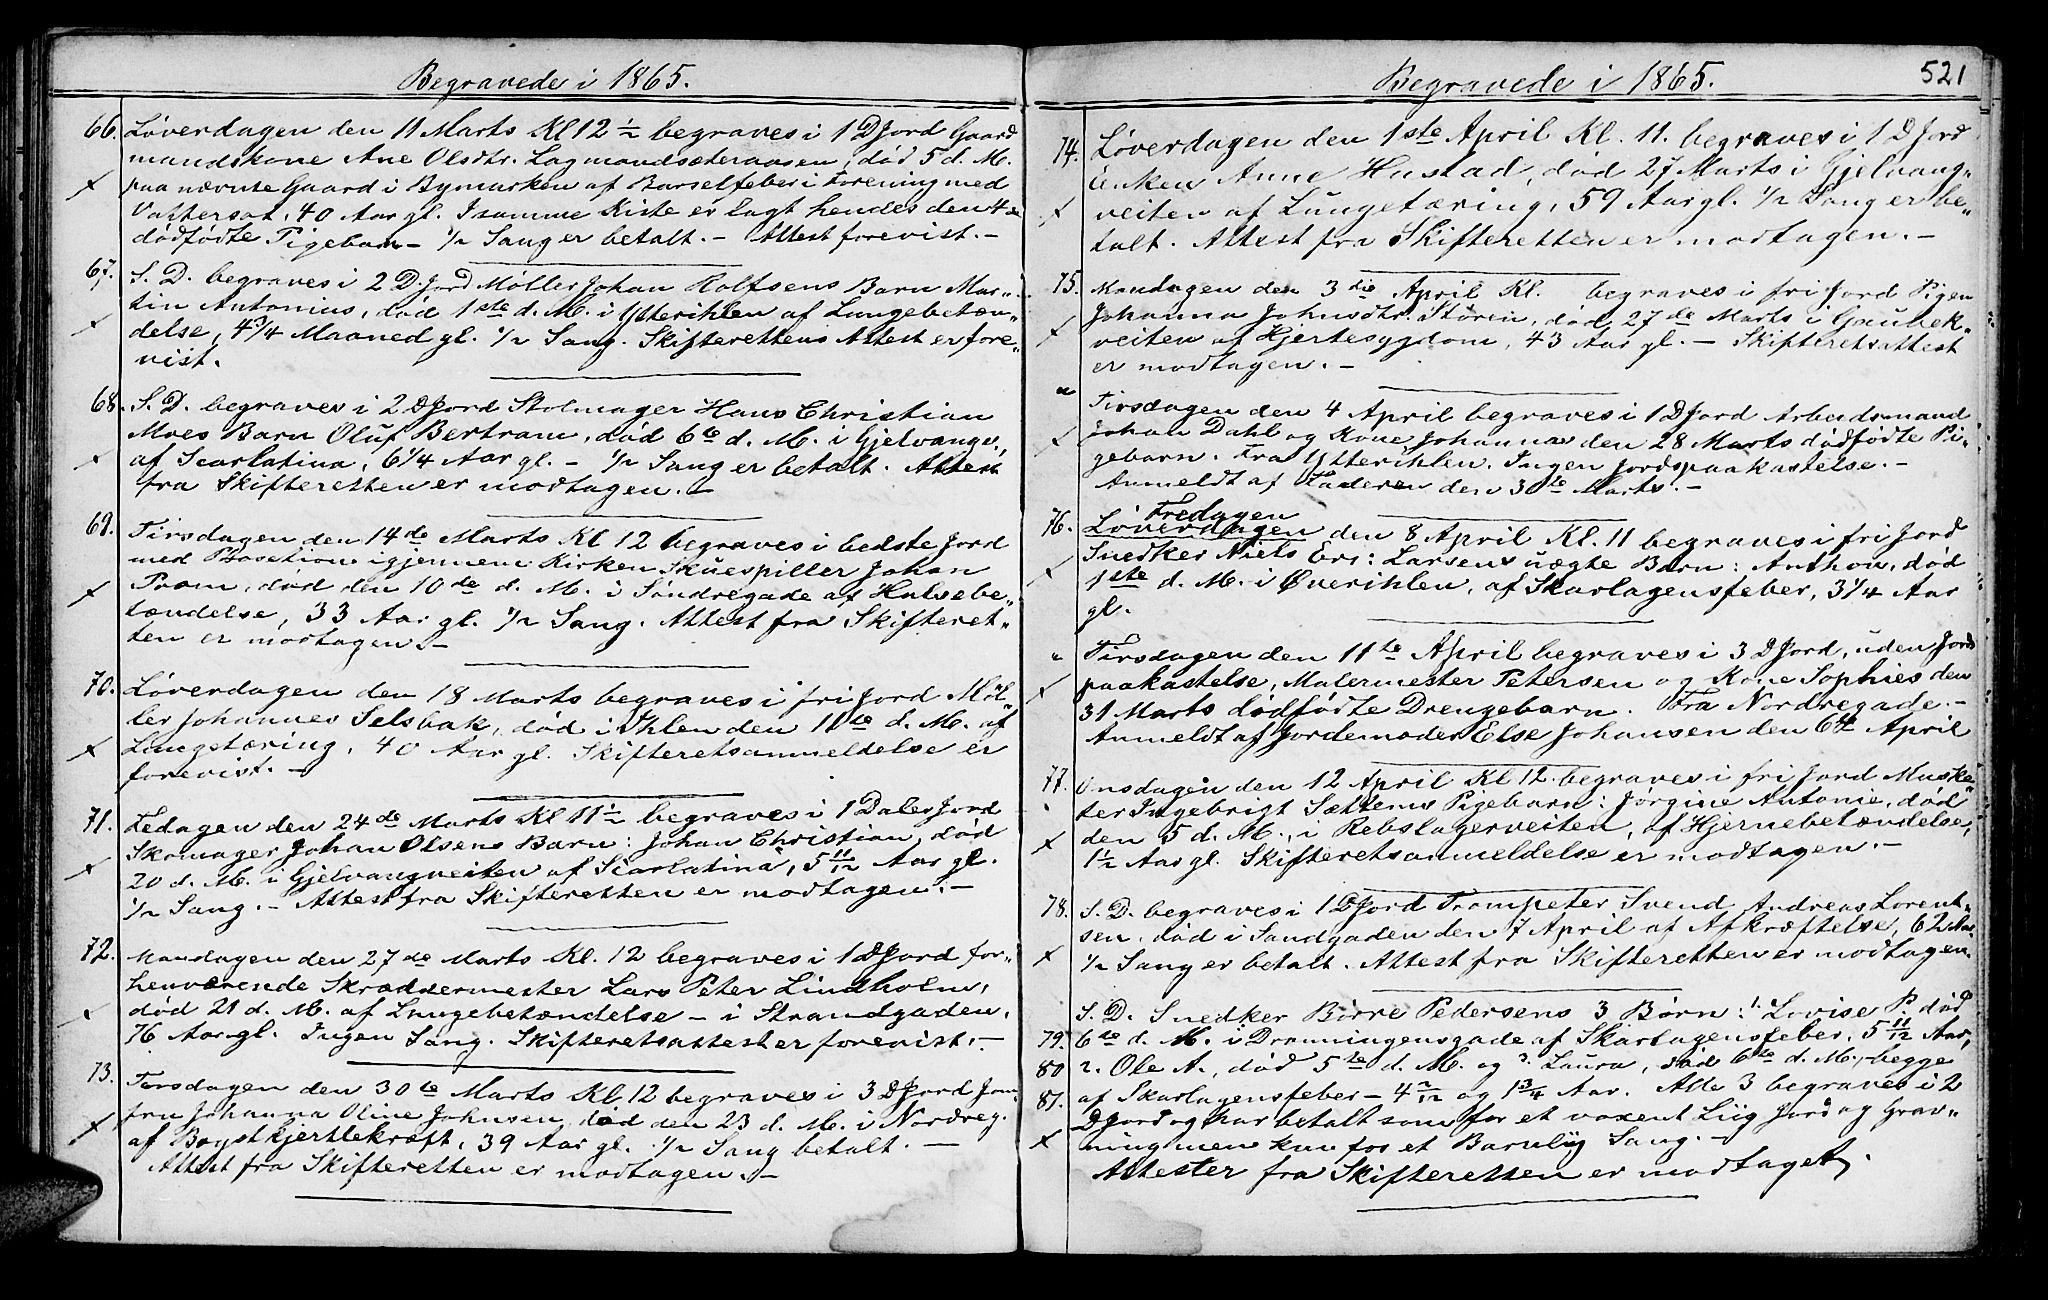 Begravede i 1865.
66. Løverdagen den 11 Marts Kl 12 ½ begraves i 1 D Jord Gaard
mandskone Ane Olsdtr. Lagmandsæteraasen, død 5 d. M.
x paa nævnte Gaard i Bymarken af Barselfeber i Forening med
Vattersot, 40 Aar gl. I samme Kiste er lagt hendes den 4de
dødfødte Pigebarn – ½ Sang er betalt. – Attest forevist. –
67. S. D. begraves i 2 D. Jord Møller Johan Rolfsens Barn Mar„
tin Antonius, død 1ste d. M. i Ytterihlen af Lungebetæn„
x delse, 4¾ Maaned gl. ½ Sang. Skifterettens Attest er fore„
vist.
68. S. D. begraves i 2 D Jord Stolmager Hans Christian
Moes Barn Oluf Bertram, død 6te d. M. i Gjelvangv.,
x af Scarlatina, 6¼ Aar gl. – ½ Sang er betalt. Attest
fra Skifteretten er modtagen. –
69. Tirsdagen den 14de Marts Kl 12 begraves i bedste Jord
med igjennem Kirken Skuespiller Johan
x Prom, død den 10de d. M. i Søndregade af Halsebe„
tændelse, 33 Aar gl. ½ Sang. Attest fra Skifteret„
ten er modtagen. –
70. Løverdagen den 18 Marts begraves i fri Jord Møl„
ler Johannes Selsbak, død i Ihlen den 11te d. M. af
x Lungetæring, 40 Aar gl. Skifteretsanmeldelse er
forevist. –
71. Fredagen den 24de Marts Kl 11 ½ begraves i 1 Daler Jord
Skomager Johan Olsens Barn: Johan Christian, død
x 20 d. M. i Gjelvangveiten af Scarlatina, 5 11/12 Aar gl.
½ Sang. – Attest fra Skifteretten er modtagen. –
72. Mandagen den 27de Marts Kl. 12 begraves i 1 D Jord for„
henværende Skræddermester Lars Peter Lindholm,
x død 21 d. M. af Lungebetændelse – i Strandgaden,
76 Aar gl. Ingen Sang. Skifteretsattest er forevist. –
73. Torsdagen den 30te Marts Kl 12 begraves i 3 D Jord Jom
fru Johanna Oline Johnsen, død den 23 d. M. i Nordreg.
x af Brystkjertlekræft, 39 Aar gl. ½ Sang betalt. –
Attest fra Skifteretten er modtagen. –
Begravede i 1865.
521
74. Løverdagen den 1ste April Kl. 11. begraves i 1 D Jord
Enken Anne Hustad, død 27 Marts i Gjelvang„
x veiten af Lungetæring, 59 Aar gl. ½ Sang er be„
talt. Attest fra Skifteretten er modtagen. –
75. Mandagen den 3die April Kl. begraves i fri Jord Pigen
Johanna Johnsdtr. Støren, død 27de Marts i Gaubek„
x veiten af Hjertesygdom, 43 Aar gl. – Skifteretsattest
er modtagen. –
" Tirsdagen den 4 April begraves i 1 D Jord Arbeidsmand
x Johan Dahl og Kone Johannas den 28 Marts dødfødte Pi„
gebarn. Fra Ytterihlen. Ingen Jordspaakastelse. –
Anmeldt af Faderen den 30te Marts. –
Fredagen
76. Løverdagen den 8 April Kl. 11 begraves i fri Jord
Snedker Niels Eri: Larsens uægte Barn: Anthon, død
x 1ste d. M. i Øverihlen, af Skarlagensfeber, 3¼ Aar
gl.
" Tirsdagen den 11te April begraves i 3 D Jord, uden Jord
x paakastelse, Malermester Petersen og Kone Sophies den
31 Marts dødfødte Drengebarn. Fra Nordregade. –
Anmeldt af Jordemoder Else Johansen den 6te April
77. Onsdagen den 12 April Kl 12 begraves i fri Jord Muske„
ter Ingebrigt Sættems Pigebarn: Jørgine Antonie, død
x den 5 d. M., i Rebslagerveiten, af Hjernebetændelse,
1½ Aar gl. Skifteretsanmeldelse er modtagen. –
78. S. D. begraves i 1 D Jord Trompeter Svend Andreas Lorent„
sen, død i Sandgaden den 7 April af Afkræftelse, 62 Aar.
x ½ Sang er betalt. Attest fra Skifteretten er modtagen.
S. D. Snedker Børre Pedersens 3 Børn: 1. Lovise P. død
79. 6te d. M. i Dronningensgade af Skarlagensfeber, 5 11/12 Aar,
80 2. Ole A., død 5te d. M. og 3. Laura, død 6te d. M., begge
81. af Skarlagensfeber – 4 2/12 og 1¾ Aar. Alle 3 begraves i 2
D Jord og har betalt som for et voxent Liig Jord og Grav„
x ning men kun for et Barnliig Sang. –
Attester fra Skifteretten er modtaget.